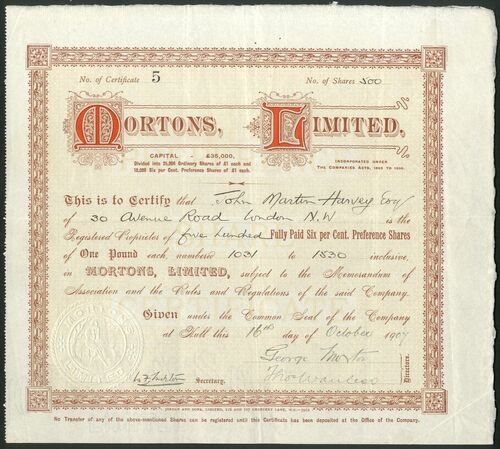 No. of Certificate 5 No. of Shares 500
MORTONS, LIMITED,
CAPITAL - £35,000,
Divided into 25,000 Ordinary Shares of £1 each and
10,000 Six per Cent. Preference Shares of £1 each.
INCORPORATED UNDER
THE COMPANIES ACTS, 1862 TO 1900.
This is to Certify that John Martin-Harvey Esq
of 30 Avenue Road London N.W is the
Registered Proprietor of five hundred Fully Paid Six per Cent. Preference Shares
of One Pound each, numbered 1031 to 1530 inclusive,
in MORTONS, LIMITED, subject to the Memorandum of
Association and the Rules and Regulations of the said Company.
Given under the Common Seal of the Company
at Hull this 16th day of October 1907
George Morton
Secretary.
Directors.
JORDAN AND SONS, LIMITED, 116 AND 117 CHANCERY LANE, W.C.
No Transfer of any of the above-mentioned Shares can be registered until this Certificate has been deposited at the Office of the Company.